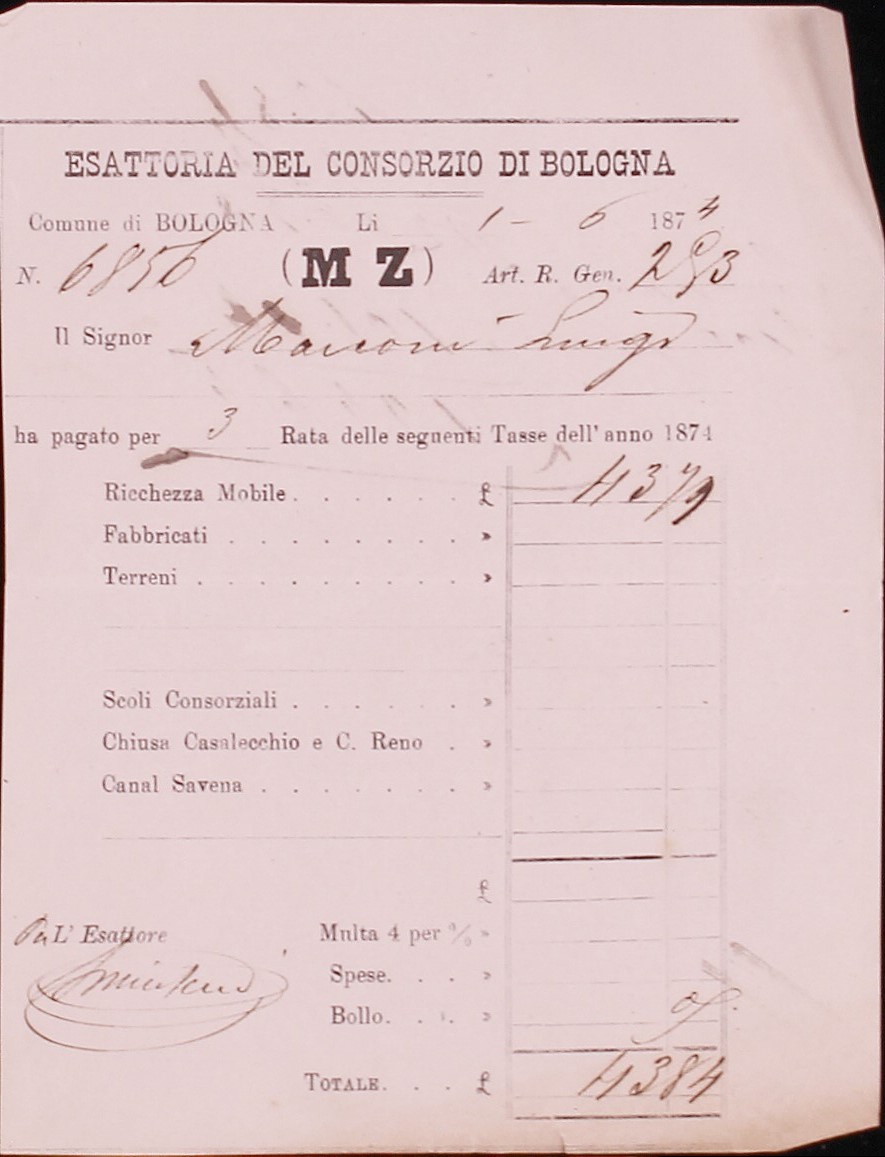 ESATTORIA DEL CONSORZIO DI BOLOGNA
Comune di BOLOGNA Li 1 - 6 1874
N. 6856 (M Z) Art. R. Gen. 293
Il Signor Marconi Luigi
ha pagato per 3 Rata delle seguenti Tasse dell' anno 1874
Ricchezza Mobile . . . . . . £ 43 79
Fabbricati . . . . . . . . . »
Terreni . . . . . . . . . . »
Scoli Consorziali . . . . . . »
Chiusa Casalecchio e C. Reno . »
Canal Savena . . . . . . . »
£
Per L' Esattore Multa 4 per % »
Spese. . . »
Bollo. . . . » 5
TOTALE. . . £ 43 84